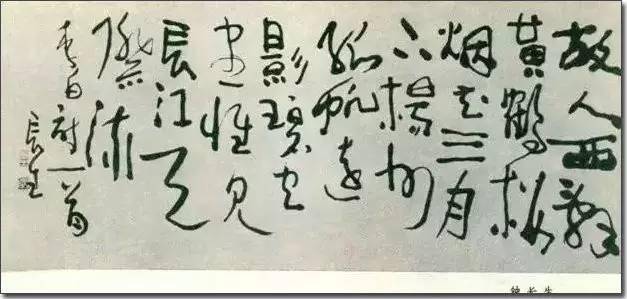 故人西辭
黃鶴樓
烟花三月
下揚州
孤帆遠
影碧空
盡惟見
長江天
際流
李白詩一首
長生